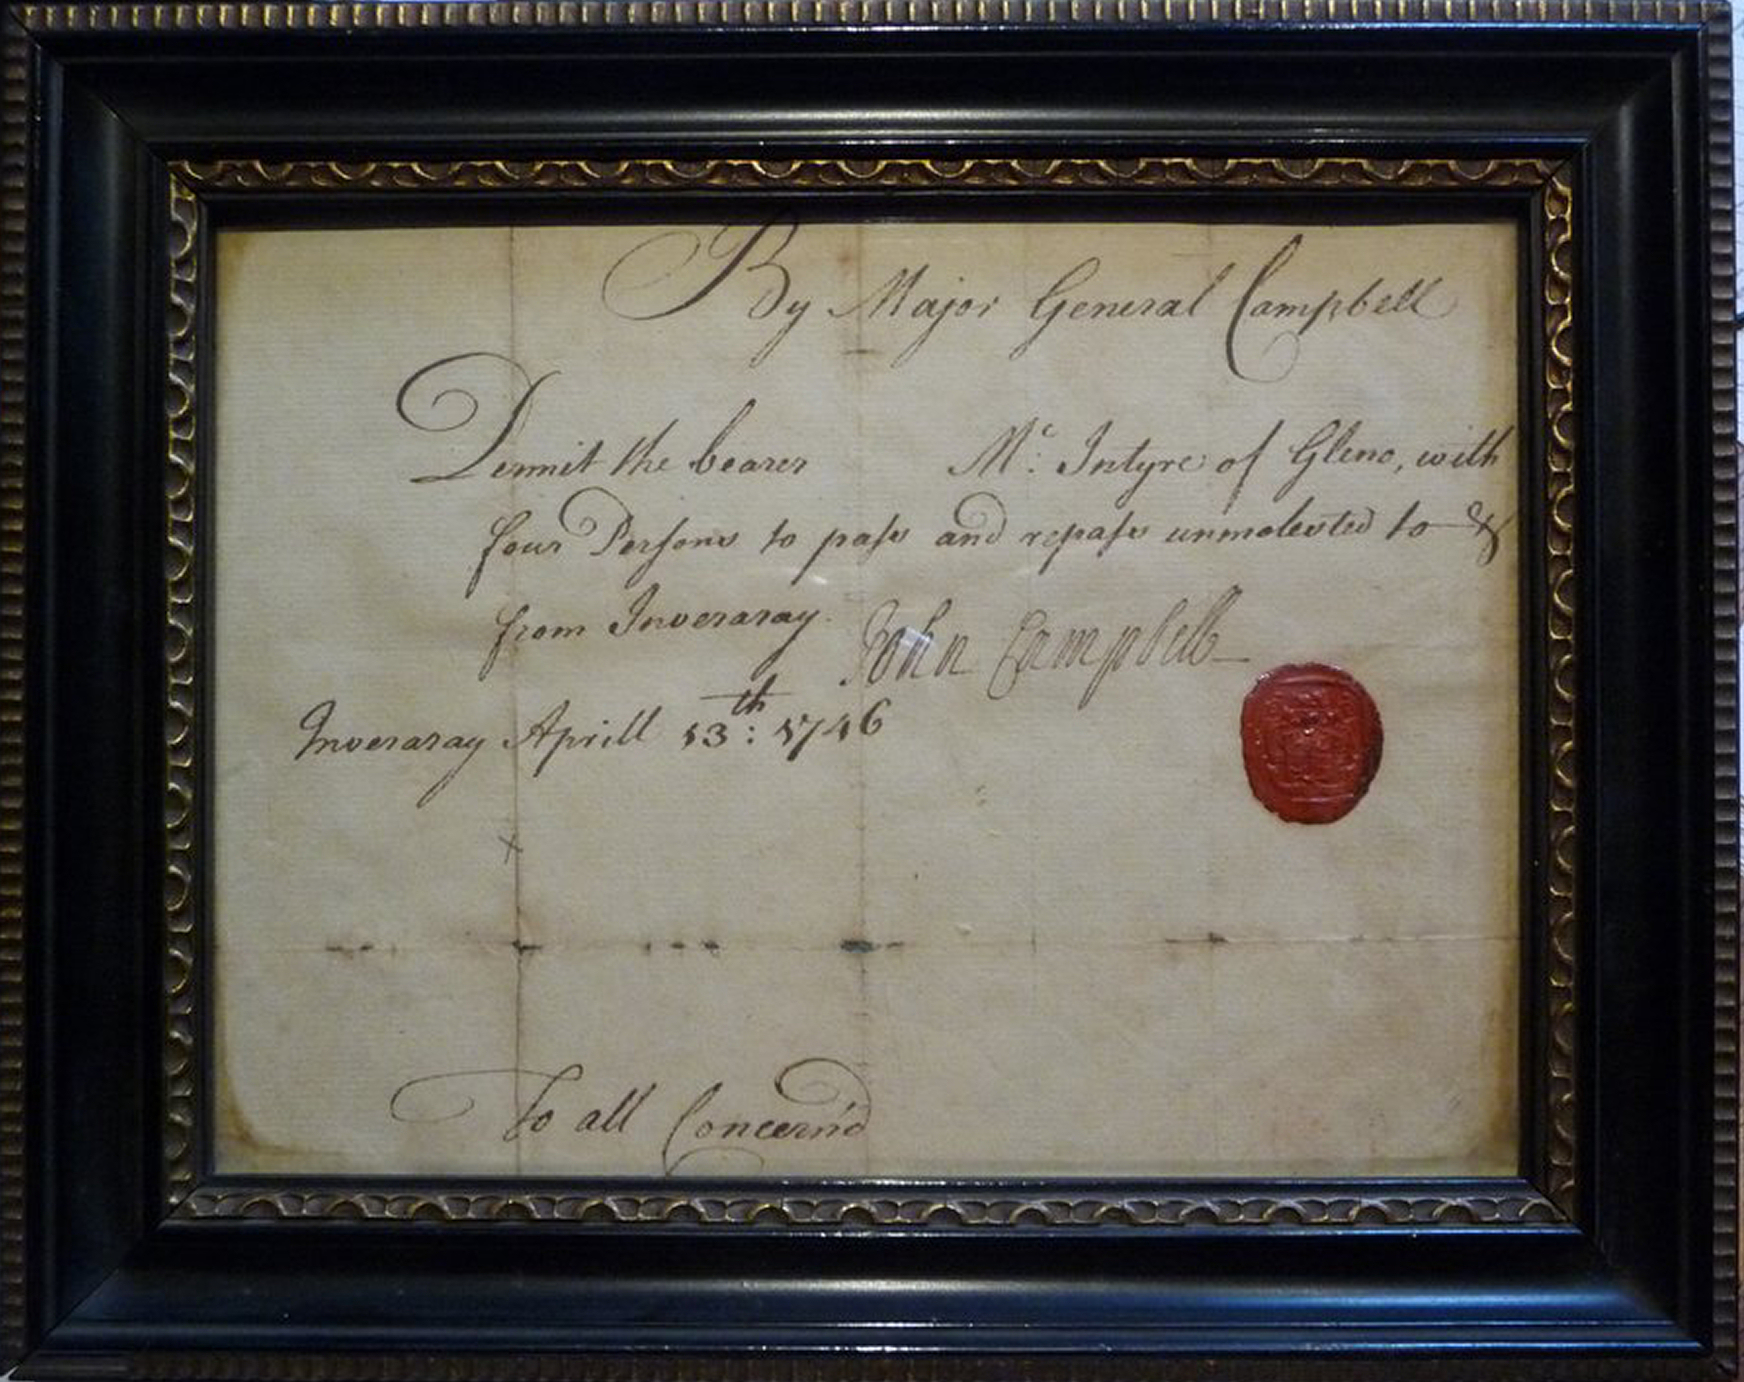 By Major General Campbell
Permit the bearer Mc: Intyre of Gleno, with
four Persons to pass and repass unmolested to &
from Inveraray.
John Campbell
Inveraray Aprill 13th: 1746
To all Concern'd